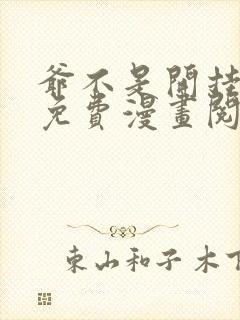 爺不是開挂
免費漫畫閱
東山和子木下